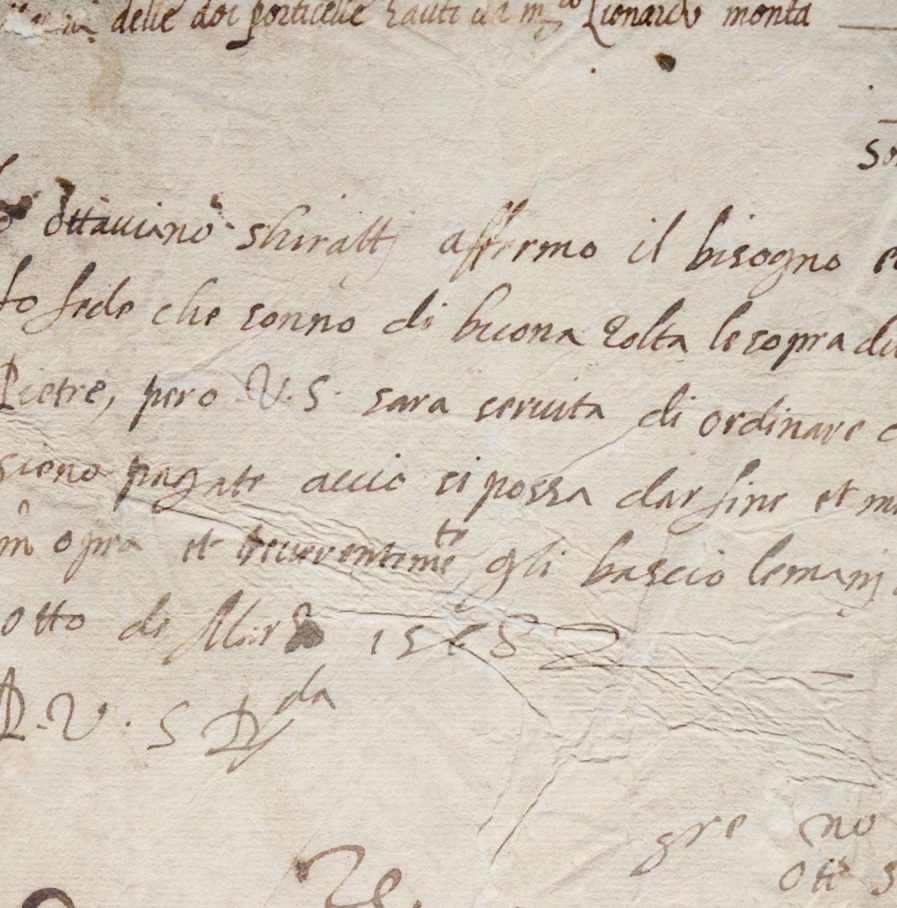 delle doi porticelle hauti da m.co Lionardo monta
so
Io ottaviano schiratti affermo il bisogno et
fo fede che sonno di buona qolta le sopra di
Pietre, pero V.S. sara servita di ordinare c
sieno pagate accio si possa dar fine et m
in opra et reverentemte gli bascio le manj
otto di Marzo 1568
D. V. S R.da